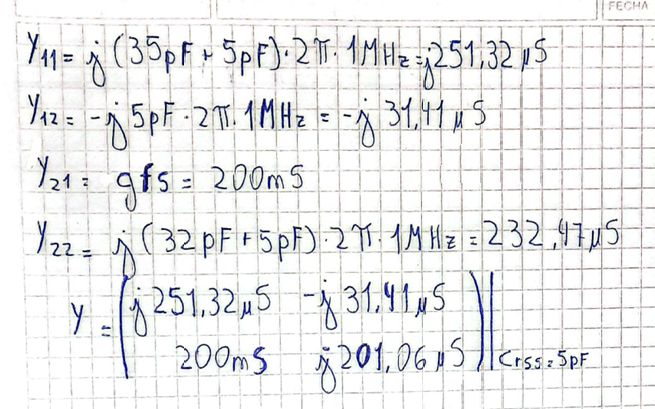 FECHA
Y11 = j(35pF + 5pF)·2π·1MHz = j251,32 µS
Y12 = -j5pF·2π·1MHz = -j 31,41 µS
Y21 = gfs = 200mS
Y22 = j(32pF + 5pF)·2π·1MHz = 232,47µS
Y = (j251,32µS -j31,41µS
200mS j201,06µS)|Crss=5pF